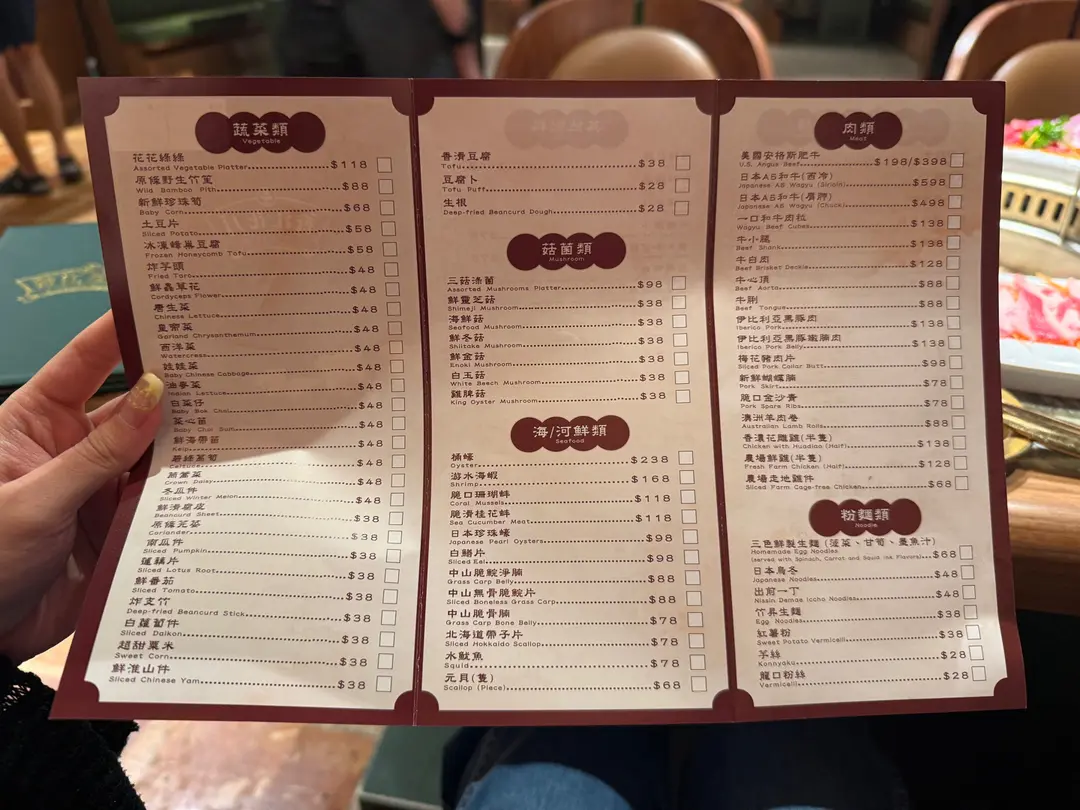 蔬菜類
Vegetable
花花綠綠
Assorted Vegetable Platter $118
原條野生竹笙
Wild Bamboo Pith $88
新鮮珍珠筍
Baby Corn $68
土豆片
Sliced Potato $58
冰凍蜂巢豆腐
Frozen Honeycomb Tofu $58
炸芋頭
Fried Taro $48
鮮蟲草花
Cordyceps Flower $48
唐生菜
Chinese Lettuce $48
皇帝菜
Garland Chrysanthemum $48
西洋菜
Watercress $48
娃娃菜
Baby Chinese Cabbage $48
油麥菜
Indian Lettuce $48
白菜仔
Baby Bok Choi $48
菜心苗
Baby Choi Sum $48
鮮海帶苗
Kelp $48
Celtuce $48
茼蒿菜
Crown Daisy $48
冬瓜件
Sliced Winter Melon $48
鮮滑腐皮
Beancurd Sheet $38
原條芫荽
Coriander $38
南瓜件
Sliced Pumpkin $38
蓮藕片
Sliced Lotus Root $38
鮮番茄
Sliced Tomato $38
炸支竹
Deep-fried Beancurd Stick $38
白蘿蔔件
Sliced Daikon $38
超甜粟米
Sweet Corn $38
鮮淮山件
Sliced Chinese Yam $38
香滑豆腐
Tofu $38
豆腐卜
Tofu Puff $28
生根
Deep-fried Beancurd Dough $28
菇菌類
Mushroom
三菇滌菌
Assorted Mushrooms Platter $98
鮮靈芝菇
Shimeji Mushroom $38
海鮮菇
Seafood Mushroom $38
鮮冬菇
Shiitake Mushroom $38
鮮金菇
Enoki Mushroom $38
白玉菇
White Beech Mushroom $38
雞脾菇
King Oyster Mushroom $38
海/河鮮類
Seafood
桶蠔
Oyster $238
游水海蝦
Shrimp $168
脆口珊瑚蚌
Coral Mussels $118
脆滑桂花蚌
Sea Cucumber Meat $118
日本珍珠蠔
Japanese Pearl Oysters $98
白鱔片
Sliced Eel $98
中山脆鯇淨腩
Grass Carp Belly $88
中山無骨脆鯇片
Sliced Boneless Grass Carp $88
中山脆骨腩
Grass Carp Bone Belly $78
北海道帶子片
Sliced Hokkaido Scallop $78
水魷魚
Squid $78
元貝(隻)
Scallop (Piece) $68
肉類
Meat
美國安格斯肥牛
U.S. Angus Beef $198/$398
日本A5和牛(西冷)
Japanese A5 Wagyu (Sirloin) $598
日本A5和牛(肩脾)
Japanese A5 Wagyu (Chuck) $498
一口和牛肉粒
Wagyu Beef Cubes $138
牛小腿
Beef Shank $138
牛白肉
Beef Brisket Deckle $128
牛心頂
Beef Aorta $88
牛脷
Beef Tongue $88
伊比利亞黑豚肉
Iberico Pork $138
伊比利亞黑豚嫩腩肉
Iberico Pork Belly $138
梅花豬肉片
Sliced Pork Collar Butt $98
新鮮蝴蝶腩
Pork Skirt $78
脆口金沙骨
Pork Spare Ribs $78
澳洲羊肉卷
Australian Lamb Rolls $88
香濃花雕雞(半隻)
Chicken with Huadiao (Half) $138
農場鮮雞(半隻)
Fresh Farm Chicken (Half) $128
農場走地雞件
Sliced Farm Cage-free Chicken $68
粉麵類
Noodle
三色鮮製生麵 (菠菜、甘筍、墨魚汁)
Homemade Egg Noodles
(served with Spinach, Carrot and Squid Ink Flavors) $68
日本烏冬
Japanese Noodles $48
出前一丁
Nissin Demae Iccho Noodles $48
竹昇生麵
Egg Noodles $38
紅薯粉
Sweet Potato Vermicelli $38
芋絲
Konnyaku $28
龍口粉絲
Vermicelli $28